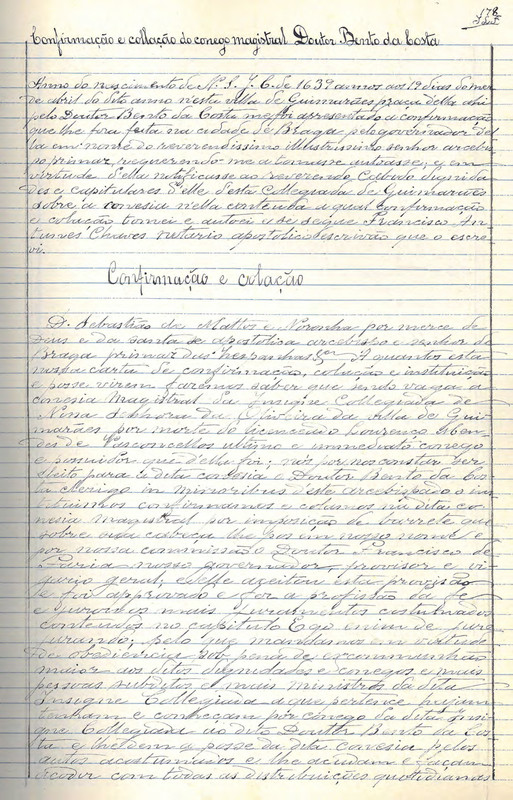 178
Confirmação e collação do conego magistral Doutor Bento da Costa
Anno do nascimento de N. S. J. C. de 1639 annos aos 19 dias do mez
de abril do dito anno nesta villa de Guimarães praça della ahi
pelo Doutor Bento da Costa me foi apresentado a confirmação
que lhe fora feita na cidade de Braga pelo governador del
la em nome do reverendissimo Illustrissimo senhor arcebis
po primaz, requerendo-me a tomasse e autuasse, e em
virtude d'ella notificasse ao reverendo Cabido dignida
des e capitulares d'elle d'esta Collegiada de Guimarães
sobre a conesia nella contheuda a qual confirmação
e colação tomei e autoei e se segue Francisco An
tunes Chaves notario apostolico escrivão que o escre
vi.
Confirmação e colação
D. Sebastião de Mattos e Noronha por merce de
Deus e da santa se apostolica arcebispo e senhor de
Braga primaz das hespanhas A quantos esta
nossa carta de confirmação, colação e instituição
e posse virem fazemos saber que sendo vaga a
conesia magistral da Insigne Collegiada de
Nossa Senhora da Oliveira da villa de Gui
marães por morte do licenceado Lourenço Men
des de Vasconcellos ultimo e immediato conego
e possuidor que d'ella foi; nós por nos constar ser
eleito para a dita conesia o Doutor Bento da Cos
ta clerigo in minoribus deste arcebispado o ins
tituimos confirmamos e colamos na dita co
nesia magistral por imposição de barrete que
sobre sua cabeça lhe pos em nosso nome e
por nossa commissão o Doutor Francisco de
Faria nosso governador, provisor e vi
gario geral, e elle aceitou esta provisão
e foi approvado e fez a profissão da fe
e juramentos costumados
conteudos no capitulo Ego enim de jure
jurando; pelo que mandamos em virtude
de obediencia e sob pena de excommunhão
maior aos ditos dignidades e conegos e mais
pessoas subditos e mais ministros da dita
Insigne Collegiada a que pertence hajam
tenham e conheçam por conego da dita insi
gne Collegiada ao dito Doutor Bento da Cos
ta e lhe dem a posse da dita conesia pelos
autos acostumados e lhe acudam e façam
acodir com todas as distribuições quotidianas